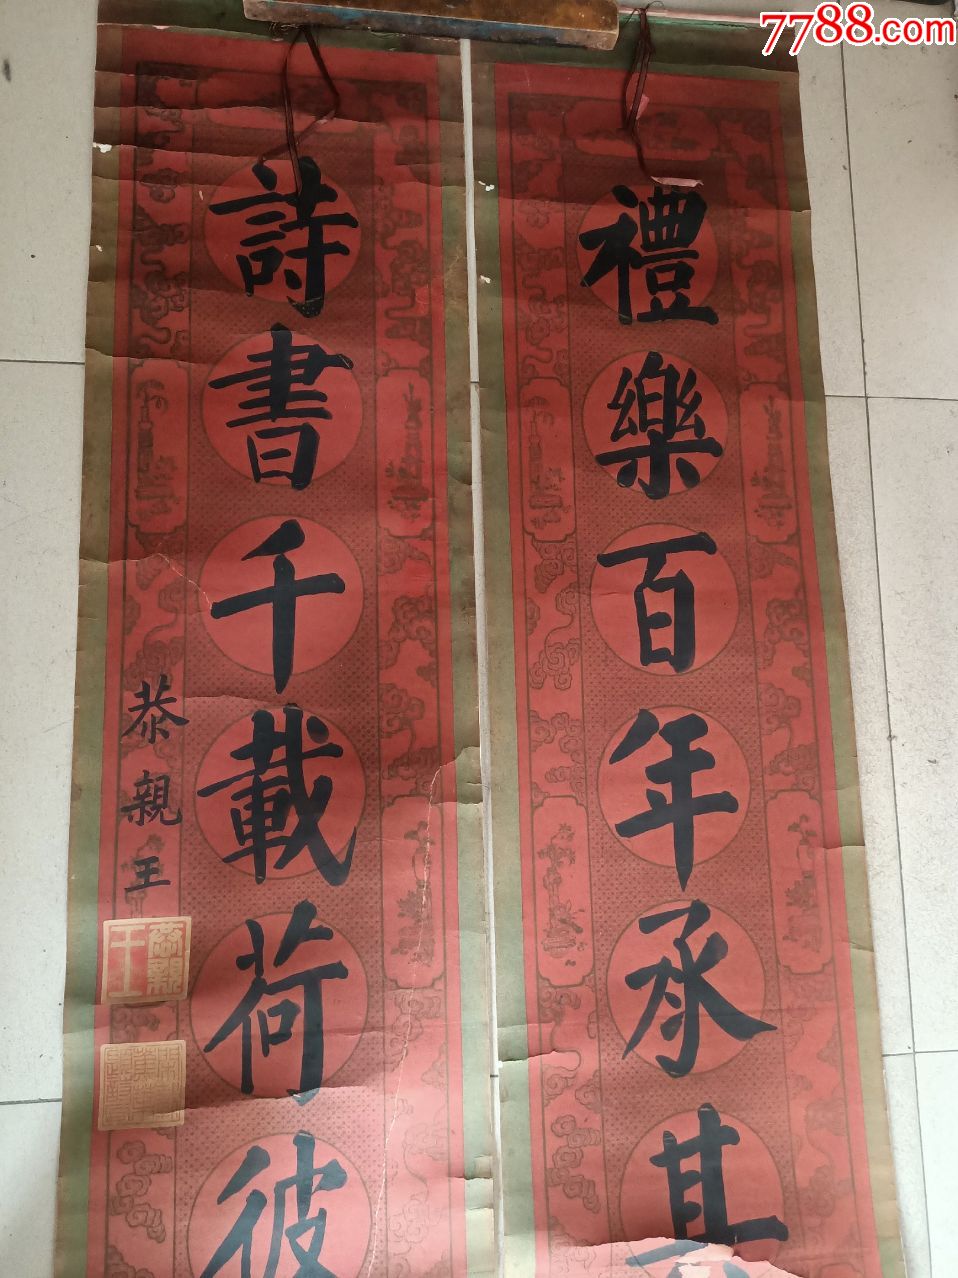 7788.com
禮樂百年承其
詩書千載荷彼
恭親王
恭親王